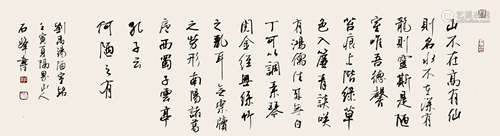 山不在高有仙
則名水不在深有
龍則靈斯是陋
室唯吾德馨
苔痕上階綠草
色入簾青談笑
有鴻儒往來無白
丁可以調素琴
閱金經無絲竹
之亂耳無案牘
之勞形南陽諸葛
廬西蜀子雲亭
孔子云
何陋之有
劉禹錫陋室銘
壬寅夏山人
石書